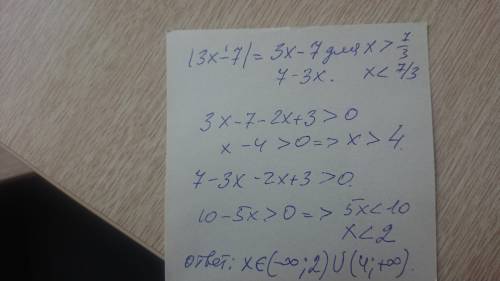 |3x-7| = 3x-7 для x > 7/3
7-3x. x < 7/3
3x-7-2x+3>0
x-4>0 => x>4.
7-3x-2x+3>0.
10-5x>0 => 5x<10
x<2
ответ: x∈(-∞;2)∪(4;+∞).